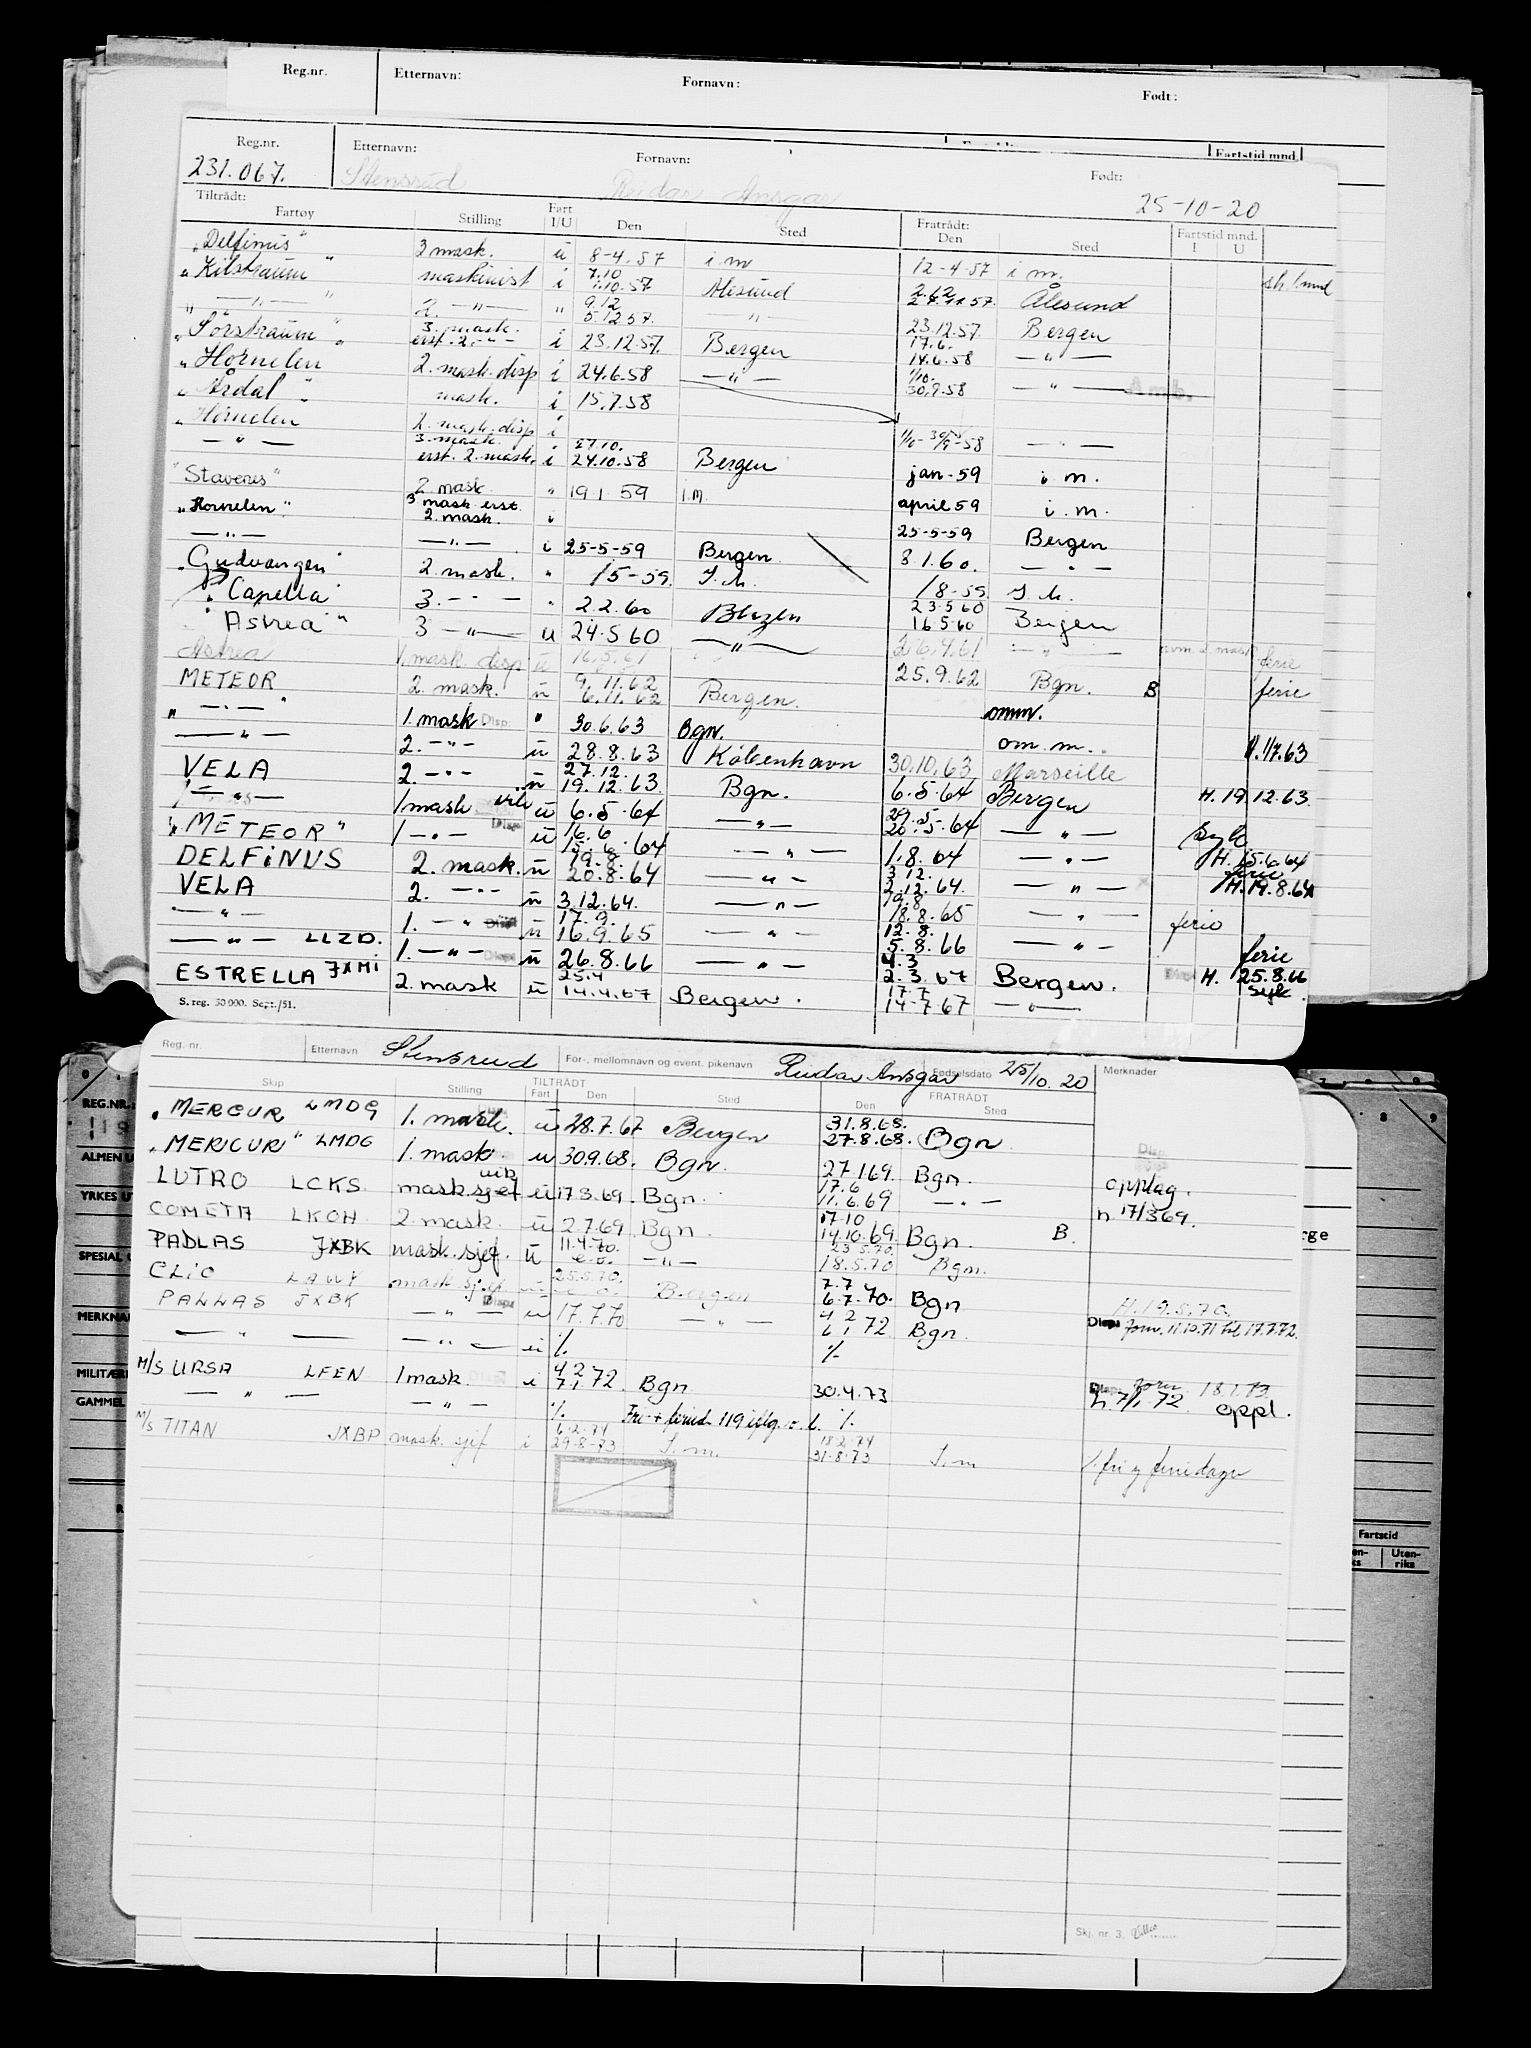 Reg.nr. Etternavn: Fornavn: Født:
Reg.nr. Etternavn: Fornavn: Født: Fartstid mnd.
231.067. Stensrud Reidar Ansgar 25-10-20
Tiltrådt: Fratrådt: Fartstid mnd.
Fartøy Stilling Fart I/U Den Sted Den Sted I U
"Delfinus" 3 mask. u 8-4.57 i.m 12-4-57 i m.
"Kilstraum" maskinist i 7.10 1.10.57 Ålesund 2.12 57. Ålesund
" —"— " 2. —"— " 9.12 5.12.57. —"— 23.12.57. Bergen
"Sörstraum" 3. mask. erst. 2. -"- i 23.12.57. Bergen 17.6. 14.6.58 —"—
"Hornelen 2. mask. disp i 24.6.58 —"— 1/10. 30.9.58 —"— Amb.
"Årdal" mask. i 15.7.58
"Hornelen 2. mask. disp i 58 —"—
—"— 3. mask. erst. 2. mask. i 27.10. 24.10.58 Bergen jan. 59 i. m.
"Stavenes" 2 mask " 19 1 59 i.m. april 59 i. m.
"Hornelen" 3 mask erst. 2. mask. " 25-5-59 Bergen
—"— —"— i 25-5-59 Bergen 8.1.60. — " —
"Gudvangen" 2. mask. " /5-59. I.m. /8-59 I.m.
"Capella" 3. —"— " 2.2.60 Bergen 23.5.60 16.5.60 Bergen
"Astrea" 3 —"— u 24.5.60 —"— 26.4.61 —"—
Astrea 1. mask. disp u 16.5.61 25.9.62 Bgn. B ferie
METEOR 2. mask. u 9.11.62 6.11.62 Bergen. omm. ferie
" —"— " 1. mask Disp. " 30.6.63 Bgn. om. m. 1/7.63
—"— 2. -"- u 28.8.63 Köbenhavn 30.10.63 Marseille
VELA 2. -"- u 27.12. 19.12.63. Bgn. 6.5.64 Bergen H. 19.12.63.
—"— 1 mask vik u 6.5.64 —"— 29.5. 20.5.64 —"— Syk
"METEOR" 1 -"- Disp. u 16.6 15.6.64 —"— 1.8.64 —"— H. 15.6.64 ferie
DELFiNUS 2. mask. u 19.8. 20.8.64 —"— 3 12. 2.12.64. —"— H. 19.8.64
VELA 2. -"- u 3.12.64. —"— 19.8 18.8.65 —"— ferie
—"— 1. -"- Disp u 17.9. 16.9.65 —"— 12.8. 5.8.66 —"— ferie
—"— LLZD. 1. -"- Disp. u 26.8.66 —"— 4.3 2.3.67 Bergen. Disp H. 25.8.66 syk.
ESTRELLA JXMI 2. mask u 25.4 14.4.67 Bergen. 17.7 14-7-67 —"—
S. reg. 30 000. Sept./51.
Reg. nr. Etternavn Stensrud For-, mellomnavn og event. pikenavn Reidar Ansgar Fødselsdato 25/10. 20 Merknader
Skip Stilling TILTRÅDT Fart Den Sted FRATRÅDT Den Sted
"MERCUR LMDG 1. mask. u 28.7.67 Bergen 31.8.68. 27.8.68. Bgn
"MERCUR" LMDG 1. mask. u 30.9.68. Bgn. 27 1 69. Bgn. Disp.
LUTRO LCKS mask.sjef vik u 17.3.69. Bgn. 17.6 11.6.69 —"— opplag. h 17/3 69.
COMETA LKOH 2. mask. u 2.7.69 Bgn. 17.10 14.10.69. Bgn. B.
PALLAS JXBK mask. sjef. u 11.4.70. —"— 23.5.70. 18.5.70 Bgn.
CLiO LAWY mask. sjef. u 25.5.70. Bergen 7.7. 6.7.70. Bgn H. 19.5.70.
PALLAS JXBK —"— Disp. u 17.7.70 —"— 4 2 6 1 72 Bgn. Disp. form. 11.10.71 til 17.7.72.
—"— —"— u % %
M/S URSA LFEN 1 mask. Disp. i 4 2 7 1 72. Bgn 30.4.73 h 7/1 72 18.1.73. oppl.
—"— —"— % %
M/S TITAN JXBP mask. sjef i 6.2.74 29-8-73 I. m. 18.2.74 31.8.73 I. m
Skj. nr. 3.
REG.NR.:
ALMEN U
YRKES U
SPESIAL U
MERKNA
MILITÆR
GAMMEL
rge
Fartstid
Uten-
riks